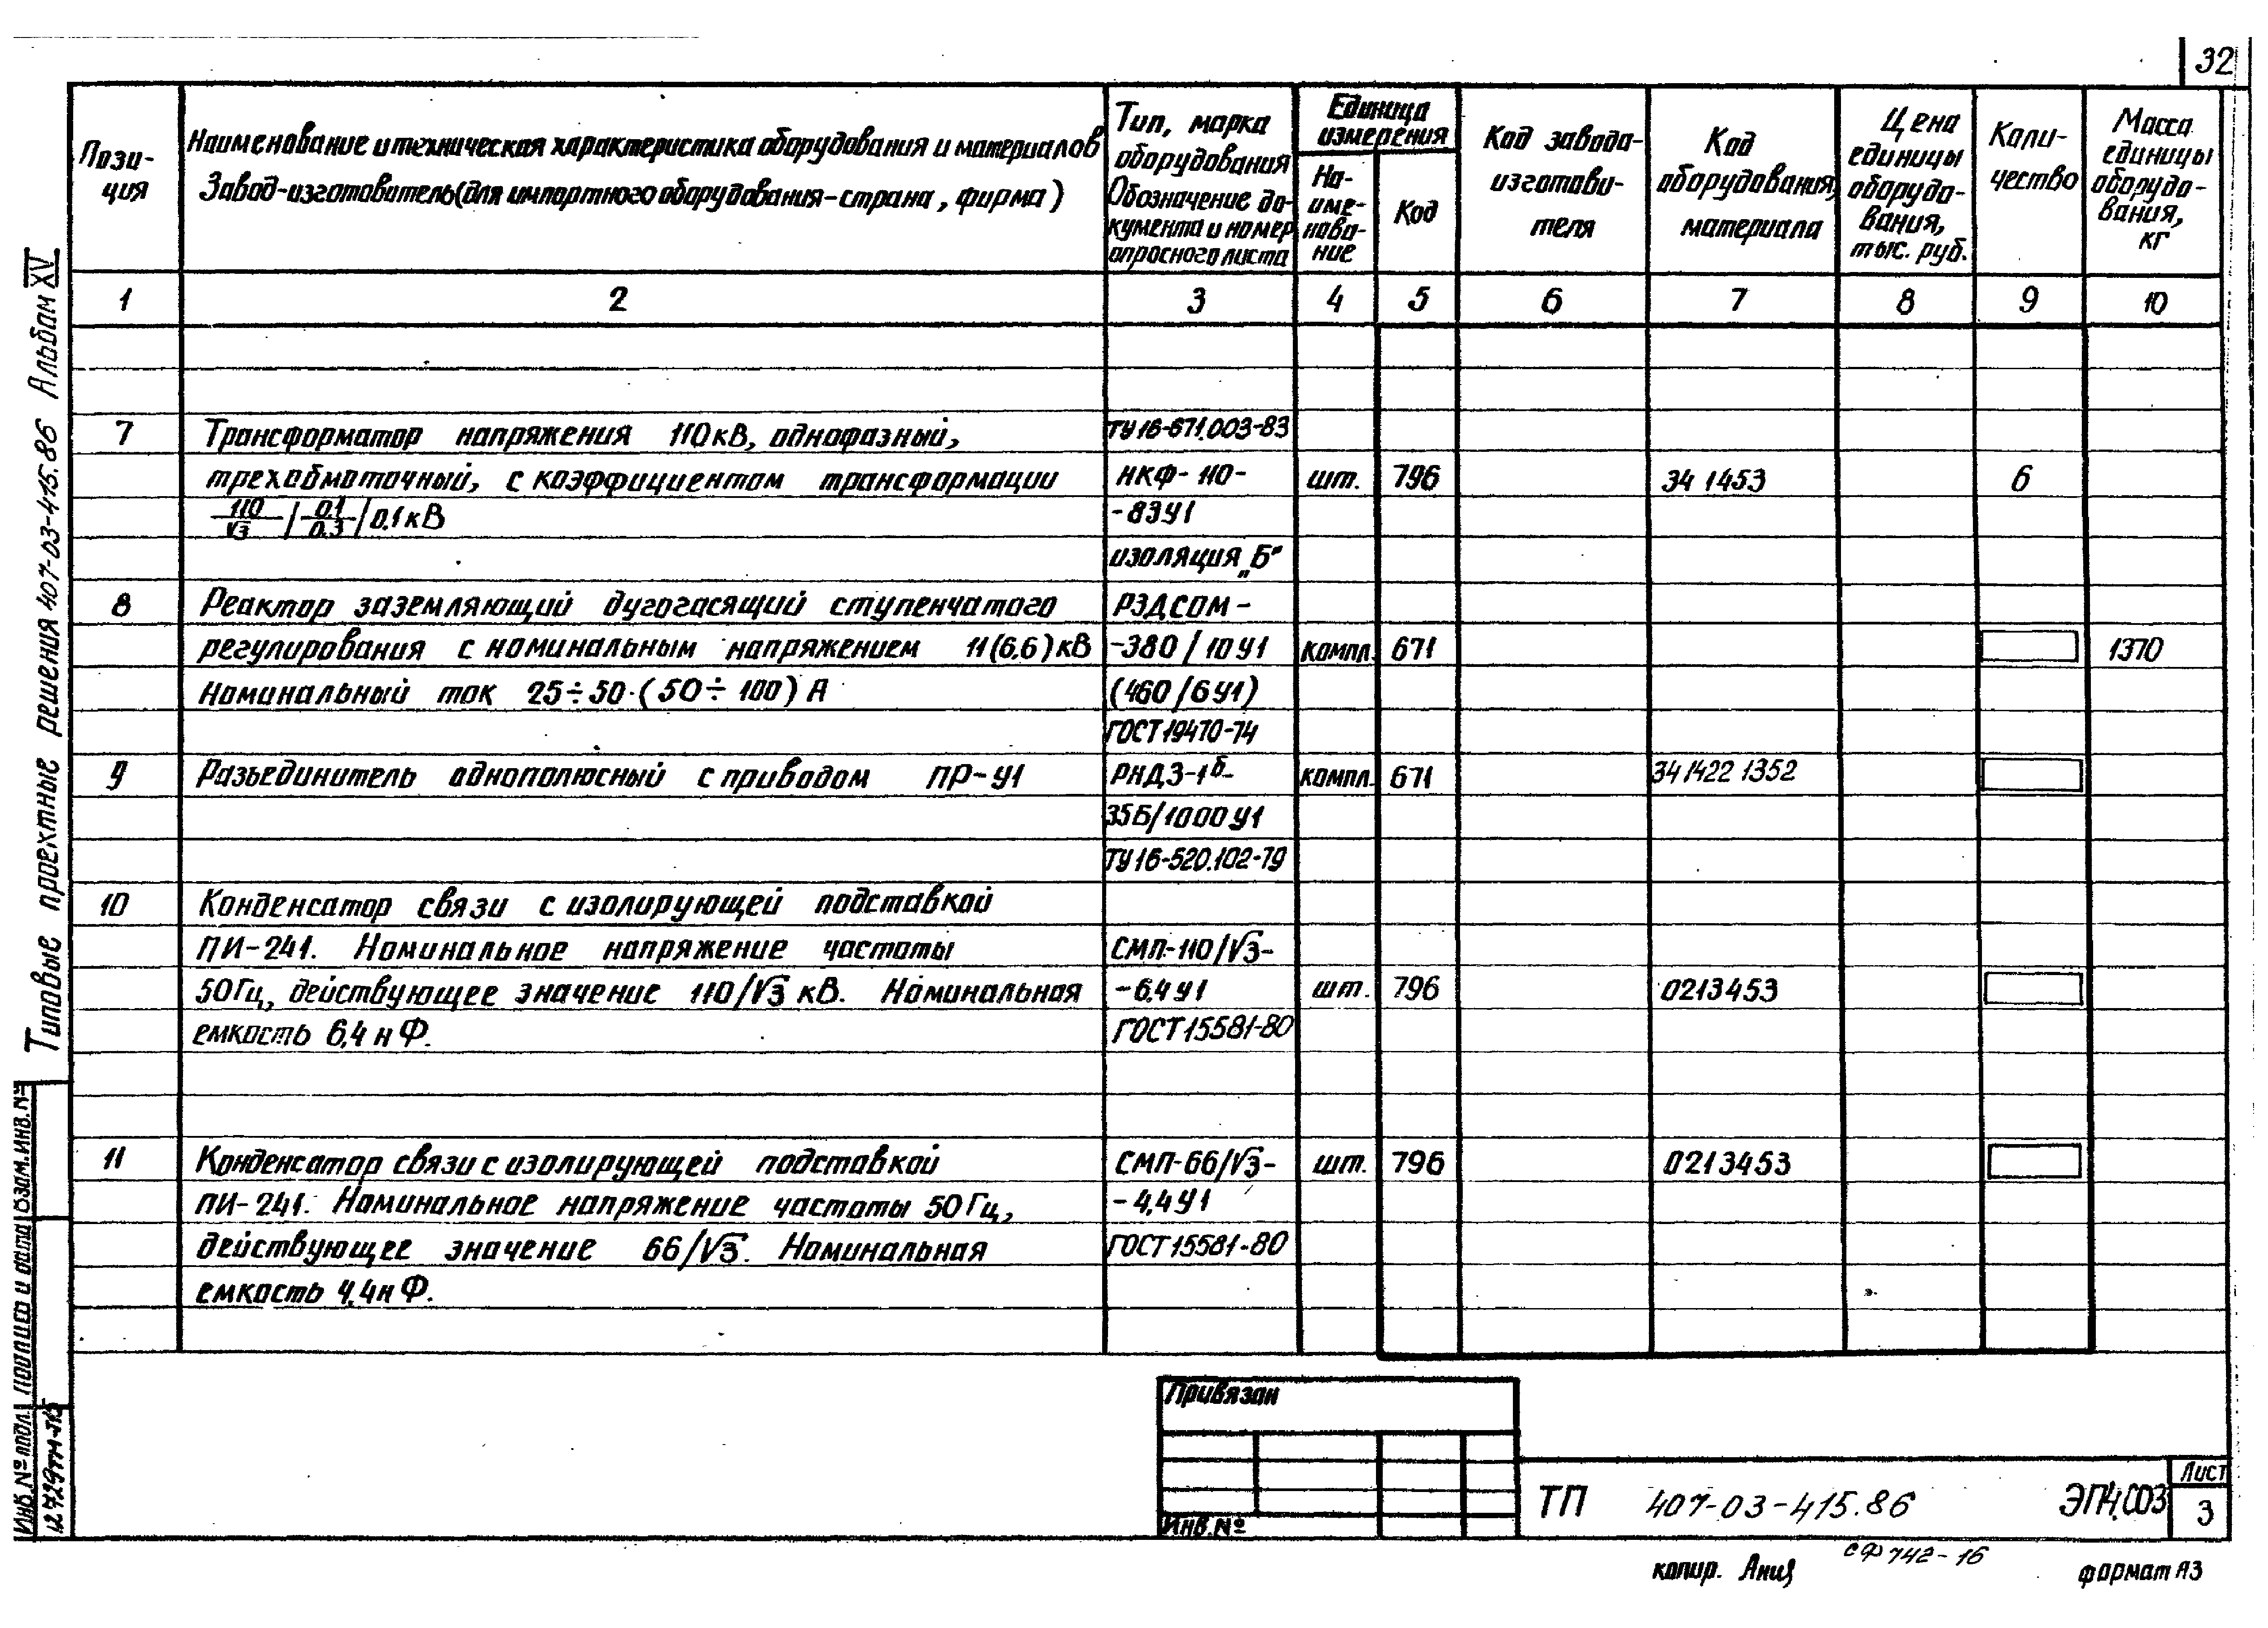 32
Пози-
ция
Наименование и техническая характеристика оборудования и материалов
Завод-изготовитель (для импортного оборудования - страна, фирма)
Тип, марка
оборудования
Обозначение до-
кумента и номер
опросного листа
Единица
измерения
На-
име-
нова-
ние
Код
Код завода-
изготови-
теля
Код
оборудования,
материала
Цена
единицы
оборудо-
вания,
тыс. руб.
Коли-
чество
Масса
единицы
оборудо-
вания,
кг
1 2 3 4 5 6 7 8 9 10
7 Трансформатор напряжения 110кВ, однофазный, ТУ16-671.003-83
трехобмоточный, с коэффициентом трансформации НКФ-110- шт. 796 34 1453 6
110/√3 / 0.1/0.3 / 0.1кВ -83У1
изоляция „Б"
8 Реактор заземляющий дугогасящий ступенчатого РЗДСОМ-
регулирования с номинальным напряжением 11(6.6)кВ -380/10У1 компл. 671 1370
Номинальный ток 25÷50·(50÷100)А (460/6У1)
ГОСТ19470-74
9 Разъединитель однополюсный с приводом ПР-У1 РНДЗ-1б- компл. 671 34 1422 1352
35Б/1000У1
ТУ16-520.102-79
10 Конденсатор связи с изолирующей подставкой
ПИ-241. Номинальное напряжение частоты СМП-110/√3-
50Гц, действующее значение 110/√3 кВ. Номинальная -6,4У1 шт. 796 0213453
емкость 6,4нФ. ГОСТ15581-80
11 Конденсатор связи с изолирующей подставкой СМП-66/√3- шт. 796 0213453
ПИ-241. Номинальное напряжение частоты 50Гц, -4,4У1
действующее значение 66/√3. Номинальная ГОСТ15581-80
емкость 4,4нФ.
Типовые проектные решения 407-03-415.86 Альбом XV
Взам.инв.№
Подпись и дата
Инв.№ подл.
12729тм-т15
Привязан
Инв.№
ТП 407-03-415.86 ЭП4.СО3
Лист
3
копир.
сф 742-16
формат А3